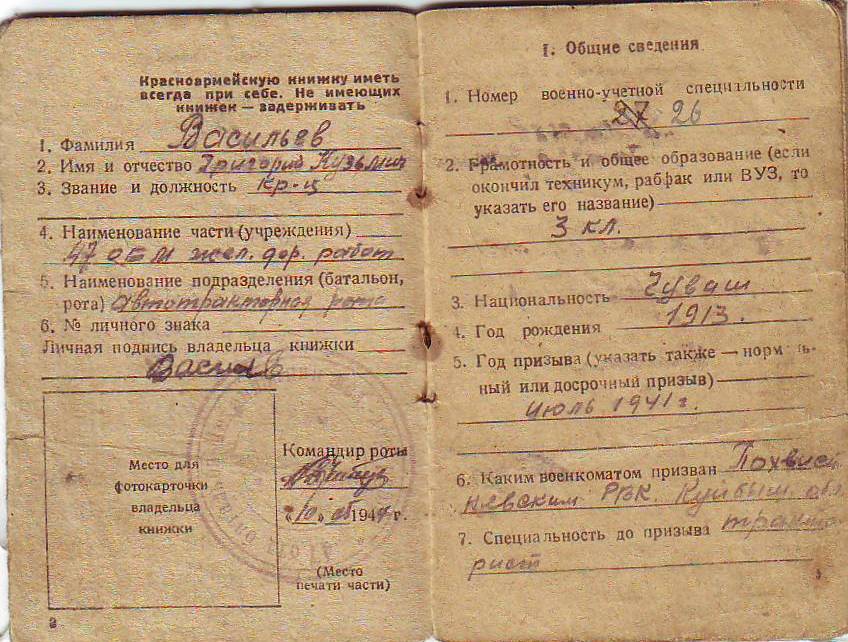 Красноармейскую книжку иметь
всегда при себе. Не имеющих
книжек — задерживать
1. Фамилия Васильев
2. Имя и отчество Григорий Кузьмич
3. Звание и должность кр-ц
4. Наименование части (учреждения)
47 ОБМ жел. дор. работ
5. Наименование подразделения (батальон,
рота) автотракторная рота
6. № личного знака
Личная подпись владельца книжки
Васильев
Место для
фотокарточки
владельца
книжки
Командир роты
"10" 1944 г.
(Место
печати части)
2
I. Общие сведения
1. Номер военно-учетной специальности
27 26
2. Грамотность и общее образование (если
окончил техникум, рабфак или ВУЗ, то
указать его название)
3 кл.
3. Национальность Чуваш
4. Год рождения 1913.
5. Год призыва (указать также — нормаль-
ный или досрочный призыв)
июль 1941 г.
6. Каким военкоматом призван Похвист
невским РВК. Куйбыш. обл
7. Специальность до призыва тракто-
рист
3